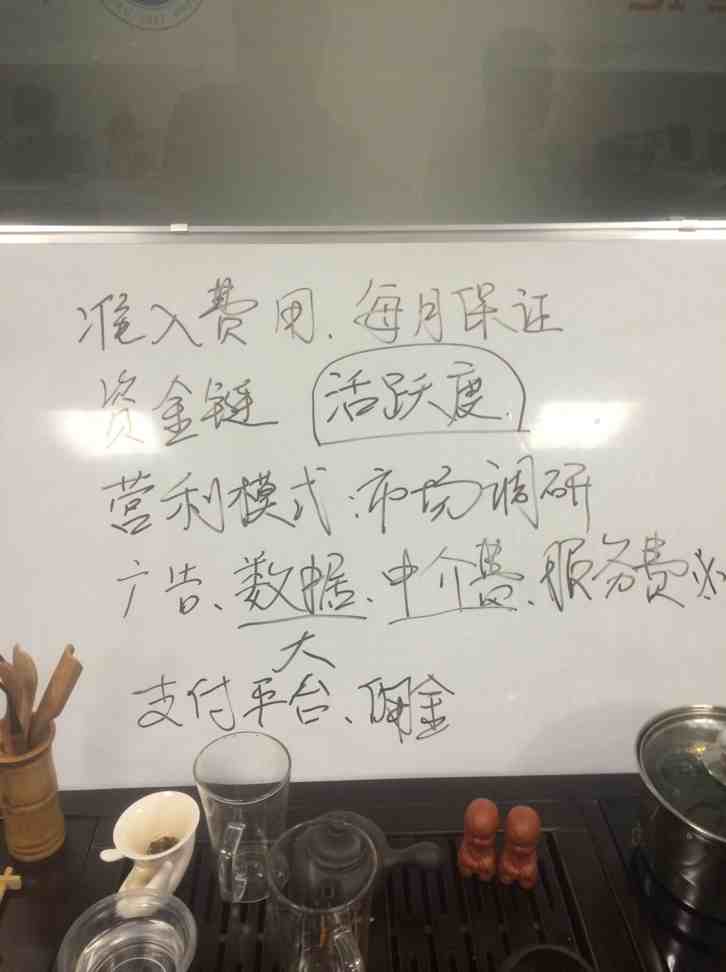 准入费用、每月保证
资金链 活跃度
营利模式:市场调研
广告、数据、中介费、服务费
大
支付平台、佣金